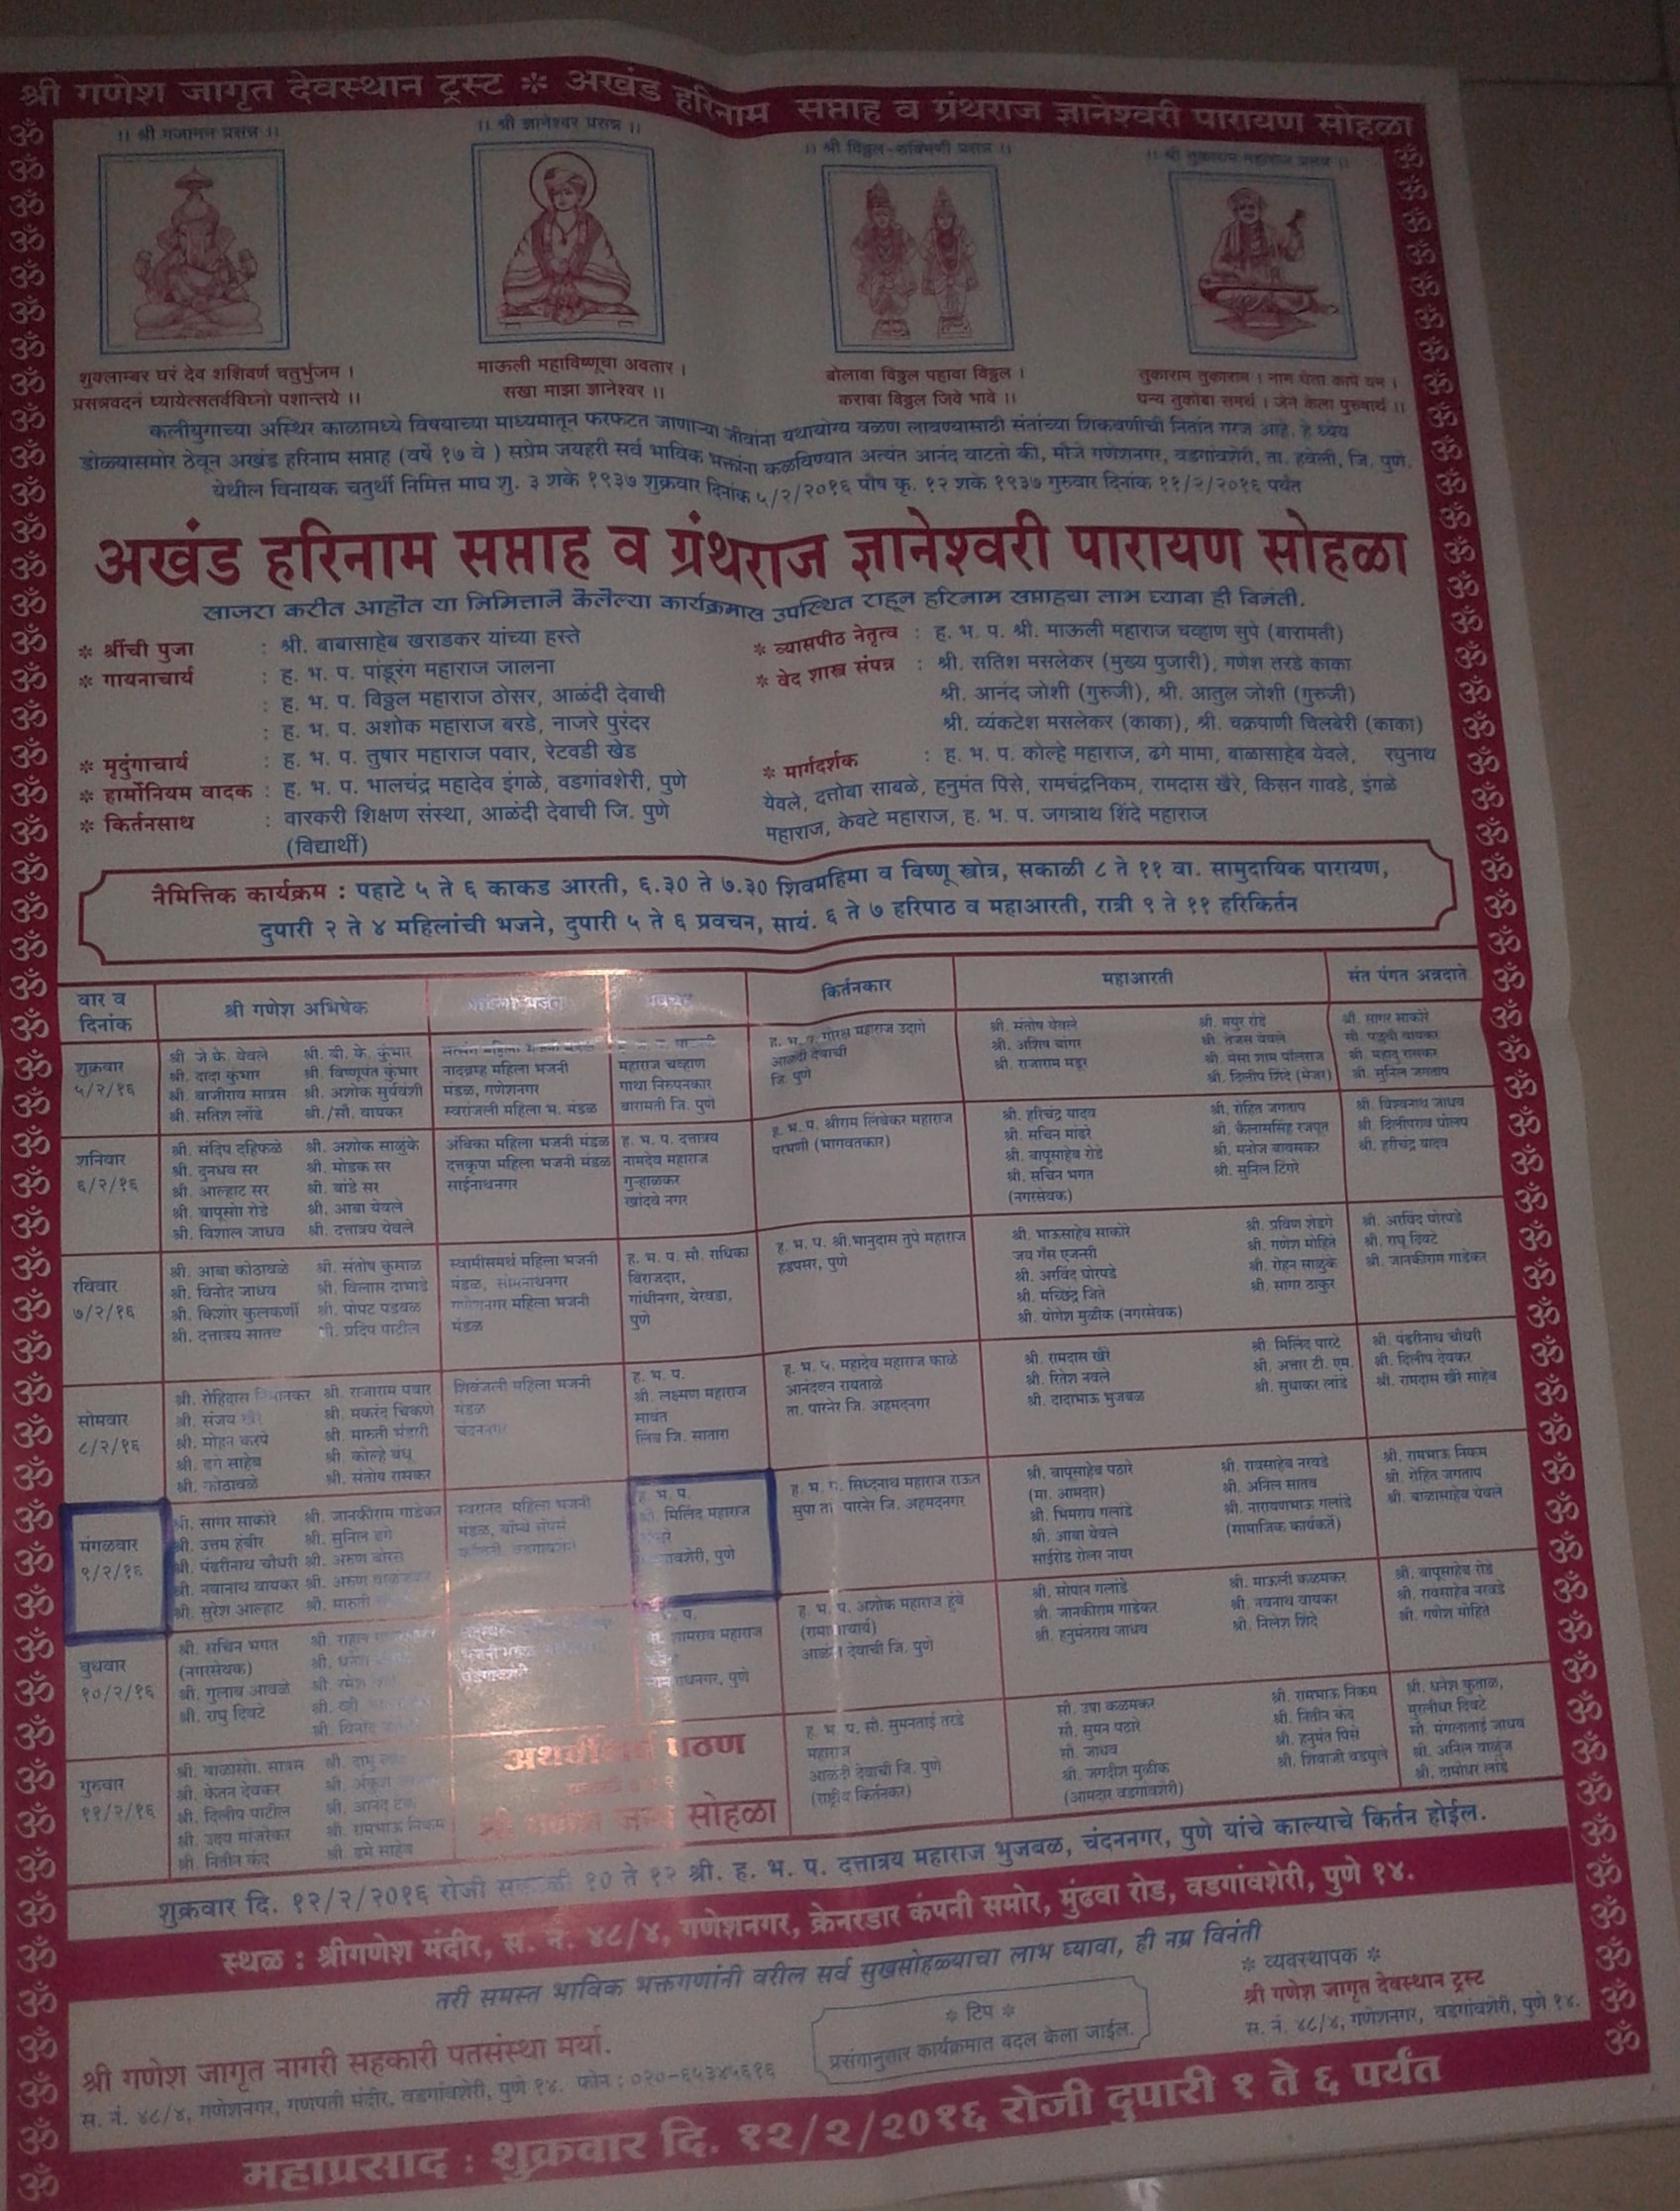 श्री गणेश जागृत देवस्थान ट्रस्ट * अखंड हरिनाम सप्ताह व ग्रंथराज ज्ञानेश्वरी पारायण सोहळा
।। श्री गजानन प्रसन्न ।।
।। श्री ज्ञानेश्वर प्रसन्न ।।
।। श्री विठ्ठल-रुक्मिणी प्रसन्न ।।
।। श्री तुकाराम महाराज प्रसन्न ।।
शुक्लाम्बर धरं देव शशिवर्ण चतुर्भुजम ।
प्रसन्नवदनं ध्यायेत्सतर्वविघ्नो पशान्तये ।।
माऊली महाविष्णूचा अवतार ।
सखा माझा ज्ञानेश्वर ।।
बोलावा विठ्ठल पहावा विठ्ठल ।
करावा विठ्ठल जिवे भावे ।।
तुकाराम तुकाराम । नाम घेता कापे यम ।
धन्य तुकोबा समर्थ । जेने केला पुरुषार्थ ।।
कलीयुगाच्या अस्थिर काळामध्ये विषयाच्या माध्यमातून फरफटत जाणाऱ्या जीवांना यथायोग्य वळण लावण्यासाठी संतांच्या शिकवणीची नितांत गरज आहे. हे ध्येय
डोळ्यासमोर ठेवून अखंड हरिनाम सप्ताह (वर्षे १७ वे ) सप्रेम जयहरी सर्व भाविक भक्तांना कळविण्यात अत्यंत आनंद वाटतो की, मौजे गणेशनगर, वडगांवशेरी, ता. हवेली, जि. पुणे.
येथील विनायक चतुर्थी निमित्त माघ शु. ३ शके १९३७ शुक्रवार दिनांक ५/२/२०१६ पौष कृ. १२ शके १९३७ गुरुवार दिनांक ११/२/२०१६ पर्यंत
अखंड हरिनाम सप्ताह व ग्रंथराज ज्ञानेश्वरी पारायण सोहळा
साजरा करीत आहोत या निमित्ताने केलेल्या कार्यक्रमास उपस्थित राहून हरिनाम सप्ताहचा लाभ घ्यावा ही विनंती.
* श्रींची पुजा : श्री. बाबासाहेब खराडकर यांच्या हस्ते
* गायनाचार्य : ह. भ. प. पांडूरंग महाराज जालना
: ह. भ. प. विठ्ठल महाराज ठोसर, आळंदी देवाची
: ह. भ. प. अशोक महाराज बरडे, नाजरे पुरंदर
* मृदुंगाचार्य : ह. भ. प. तुषार महाराज पवार, रेटवडी खेड
* हार्मोनियम वादक : ह. भ. प. भालचंद्र महादेव इंगळे, वडगांवशेरी, पुणे
* किर्तनसाथ : वारकरी शिक्षण संस्था, आळंदी देवाची जि. पुणे
(विद्यार्थी)
* व्यासपीठ नेतृत्व : ह. भ. प. श्री. माऊली महाराज चव्हाण सुपे (बारामती)
* वेद शास्त्र संपन्न : श्री. सतिश मसलेकर (मुख्य पुजारी), गणेश तरडे काका
श्री. आनंद जोशी (गुरुजी), श्री. आतुल जोशी (गुरुजी)
श्री. व्यंकटेश मसलेकर (काका), श्री. चक्रपाणी चिलबेरी (काका)
* मार्गदर्शक : ह. भ. प. कोल्हे महाराज, ढगे मामा, बाळासाहेब येवले, रघुनाथ
येवले, दत्तोबा साबळे, हनुमंत पिसे, रामचंद्रनिकम, रामदास खैरे, किसन गावडे, इंगळे
महाराज, केवटे महाराज, ह. भ. प. जगन्नाथ शिंदे महाराज
नैमित्तिक कार्यक्रम : पहाटे ५ ते ६ काकड आरती, ६.३० ते ७.३० शिवमहिमा व विष्णू स्त्रोत्र, सकाळी ८ ते ११ वा. सामुदायिक पारायण,
दुपारी २ ते ४ महिलांची भजने, दुपारी ५ ते ६ प्रवचन, सायं. ६ ते ७ हरिपाठ व महाआरती, रात्री ९ ते ११ हरिकिर्तन
वार व
दिनांक
श्री गणेश अभिषेक
किर्तनकार
महाआरती
संत पंगत अन्नदाते
शुक्रवार
५/२/१६
श्री. जे. के. येवले श्री. बी. के. कुंभार
श्री. दादा कुंभार श्री. विष्णूपंत कुंभार
श्री. बाजीराव सात्रस श्री. अशोक सुर्यवंशी
श्री. सतिश लांडे श्री./सौ. वायकर
नादब्रम्ह महिला भजनी
मंडळ, गणेशनगर
स्वरांजली महिला भ. मंडळ
महाराज चव्हाण
गाथा निरुपनकार
बारामती जि. पुणे
ह. भ. प. गोरक्ष महाराज उदागे
आळंदी देवाची
जि. पुणे
श्री. संतोष येवले श्री. मयुर रोडे
श्री. अशिष बांगर श्री. तेजस येवले
श्री. राजाराम मडूर
श्री. दिलीप शिंदे (मेजर)
श्री. सागर साकोरे
श्री. सुनिल जगताप
शनिवार
६/२/१६
श्री. संदिप दहिफळे श्री. अशोक साळुंके
श्री. दुनधव सर श्री. मोडक सर
श्री. आल्हाट सर श्री. बांडे सर
श्री. बापूसो रोडे श्री. आबा येवले
श्री. विशाल जाधव श्री. दत्तात्रय येवले
अंबिका महिला भजनी मंडळ
दत्तकृपा महिला भजनी मंडळ
साईनाथनगर
ह. भ. प. दत्तात्रय
नामदेव महाराज
गुऱ्हाळकर
खांदवे नगर
ह. भ. प. श्रीराम लिंबेकर महाराज
परभणी (भागवतकार)
श्री. हरिचंद्र यादव श्री. रोहित जगताप
श्री. सचिन मांढरे श्री. कैलाससिंह रजपूत
श्री. बापूसाहेब रोडे श्री. मनोज बावसकर
श्री. सचिन भगत श्री. सुनिल टिंगरे
(नगरसेवक)
श्री. विश्वनाथ जाधव
श्री. दिलीपराव घोलप
श्री. हरीचंद्र यादव
रविवार
७/२/१६
श्री. आबा कोठावळे श्री. संतोष कुसाळ
श्री. विनोद जाधव श्री. विलास दाभाडे
श्री. किशोर कुलकर्णी श्री. पोपट पडवळ
श्री. दत्तात्रय सातव श्री. प्रदिप पाटील
स्वामीसमर्थ महिला भजनी
मंडळ, सोमनाथनगर
गणेशनगर महिला भजनी
मंडळ
ह. भ. प. सौ. राधिका
बिराजदार,
गांधीनगर, येरवडा,
पुणे
ह. भ. प. श्री.भानुदास तुपे महाराज
हडपसर, पुणे
श्री. भाऊसाहेब साकोरे श्री. प्रविण शेडगे
जय गॅस एजन्सी श्री. गणेश मोहिते
श्री. अरविंद घोरपडे श्री. रोहन साळुंके
श्री. मच्छिंद्र जिते श्री. सागर ठाकूर
श्री. योगेश मुळीक (नगरसेवक)
श्री. अरविंद घोरपडे
श्री. राघू दिवटे
श्री. जानकीराम गाडेकर
सोमवार
८/२/१६
श्री. रोहिदास श्री. राजाराम पवार
श्री. संजय खैरे श्री. मकरंद चिकणे
श्री. मोहन करपे श्री. मारुती भंडारी
श्री. ढगे साहेब श्री. कोल्हे बंधू
श्री. कोठावळे श्री. संतोष रासकर
शिवंजली महिला भजनी
मंडळ
चंदननगर
ह. भ. प.
श्री. लक्ष्मण महाराज
सावंत
लिंब जि. सातारा
ह. भ. प. महादेव महाराज फाळे
आनंदवन रायताळे
ता. पारनेर जि. अहमदनगर
श्री. रामदास खैरे श्री. मिलिंद पारटे
श्री. रितेश नवले श्री. अत्तार टी. एम.
श्री. दादाभाऊ भुजबळ श्री. सुधाकर लांडे
श्री. पंढरीनाथ चौधरी
श्री. दिलीप देवकर
श्री. रामदास खैरे साहेब
मंगळवार
९/२/१६
श्री. सागर साकोरे श्री. जानकीराम गाडेकर
श्री. उत्तम हंबीर श्री. सुनिल ढगे
श्री. पंढरीनाथ चौधरी श्री. अरुण बोरस
श्री. नवानाथ वायकर श्री. अरुण
श्री. सुरेश आल्हाट श्री. मारुती
स्वरानंद महिला भजनी
ह. भ. प.
श्री. मिलिंद महाराज
वडगावशेरी, पुणे
ह. भ. प. सिध्दनाथ महाराज राऊत
सुपा ता. पारनेर जि. अहमदनगर
श्री. बापूसाहेब पठारे श्री. रावसाहेब नरवडे
(मा. आमदार) श्री. अनिल सातव
श्री. भिमराव गलांडे श्री. नारायणभाऊ गलांडे
श्री. आबा येवले (सामाजिक कार्यकर्ते)
साईरोड रोलर नायर
श्री. रामभाऊ निकम
श्री. रोहित जगताप
श्री. बाळासाहेब येवले
बुधवार
१०/२/१६
श्री. सचिन भगत श्री. राहुल
(नगरसेवक)
श्री. गुलाब आवळे श्री. रमेश
श्री. राघु दिवटे
श्री. विनोद
शामराव महाराज
पुणे
ह. भ. प. अशोक महाराज हुंबे
(रामायाचार्य)
आळंदी देवाची जि. पुणे
श्री. सोपान गलांडे श्री. माऊली कळमकर
श्री. जानकीराम गाडेकर श्री. नवनाथ वायकर
श्री. हनुमंतराव जाधव श्री. निलेश शिंदे
श्री. बापूसाहेब रोडे
श्री. रावसाहेब नरवडे
श्री. गणेश मोहिते
गुरुवार
११/२/१६
श्री. बाळासो. सात्रस
श्री. केतन देवकर
श्री. दिलीप पाटील
श्री. उदय मांजरेकर श्री. रामभाऊ निकम
श्री. नितीन कंद श्री. ढमे साहेब
अथर्वशीर्ष पठण
श्री गणेश जन्म सोहळा
ह. भ. प. सौ. सुमनताई तरडे
महाराज
आळंदी देवाची जि. पुणे
(राष्ट्रीय किर्तनकार)
सौ. उषा कळमकर श्री. रामभाऊ निकम
सौ. सुमन पठारे श्री. नितीन कंद
सौ. जाधव श्री. हनुमंत पिसे
श्री. जगदीश मुळीक श्री. शिवाजी वडघुले
(आमदार वडगांवशेरी)
श्री. धनेश कुताळ,
मुरलीधर दिवटे
सौ. मंगलाताई जाधव
श्री. अनिल वाळुंज
श्री. दामोधर लांडे
शुक्रवार दि. १२/२/२०१६ रोजी सकाळी १० ते १२ श्री. ह. भ. प. दत्तात्रय महाराज भुजबळ, चंदननगर, पुणे यांचे काल्याचे किर्तन होईल.
स्थळ : श्रीगणेश मंदीर, स. नं. ४८/४, गणेशनगर, क्रेनरडार कंपनी समोर, मुंढवा रोड, वडगांवशेरी, पुणे १४.
तरी समस्त भाविक भक्तगणांनी वरील सर्व सुखसोहळ्याचा लाभ घ्यावा, ही नम्र विनंती
* व्यवस्थापक *
श्री गणेश जागृत देवस्थान ट्रस्ट
स. नं. ४८/४, गणेशनगर, वडगांवशेरी, पुणे १४.
* टिप *
प्रसंगानुसार कार्यक्रमात बदल केला जाईल.
श्री गणेश जागृत नागरी सहकारी पतसंस्था मर्या.
स. नं. ४८/४, गणेशनगर, गणपती मंदीर, वडगांवशेरी, पुणे १४. फोन : ०२०-६५३४५६१६
महाप्रसाद : शुक्रवार दि. १२/२/२०१६ रोजी दुपारी १ ते ६ पर्यंत